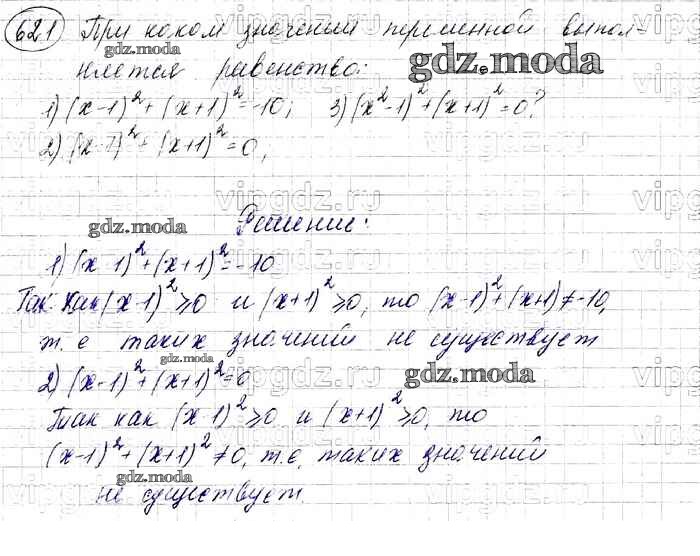 621 При каком значении переменной выпол-
няется равенство:
1) (x-1)²+(x+1)²=-10; 3) (x²-1)²+(x+1)²=0?
2) (x-1)²+(x+1)²=0;
Решение:
1) (x-1)²+(x+1)²=-10
Так как (x-1)²≥0 и (x+1)²≥0, то (x-1)²+(x+1)≠-10,
т.е таких значений не существует
2) (x-1)²+(x+1)²=0
Так как (x-1)²≥0 и (x+1)²≥0, то
(x-1)²+(x+1)²≠0, т.е. таких значений
не существует.
gdz.moda
gdz.moda
gdz.moda
gdz.moda
gdz.moda
gdz.moda
gdz.moda
vipgdz.ru